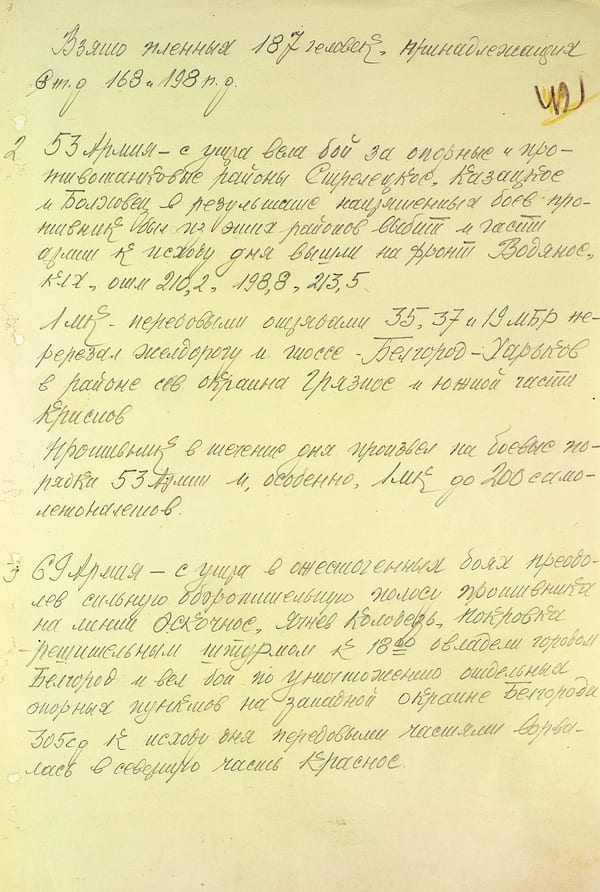 Взято пленных 187 человек, принадлежащих
6 т.д 168 и 198 п.д.
421
2 53 Армия – с утра вела бой за опорные и про-
тивотанковые районы Стрелецкое, Казацкое
и Болховец, в результате напряженных боев про-
тивник был из этих районов выбит и части
армии к исходу дня вышли на фронт Водяное,
клх, отм 210,2, 198,8, 213,5.
1 МК – передовыми отрядами 35, 37 и 19 МБР пе-
ререзал желдорогу и шоссе – Белгород – Харьков
в районе сев. окраина Грязное и южной части
Краснов
Противник в течение дня произвел на боевые по-
рядки 53 Армии и, особенно, 1 мк до 200 само-
летоналетов.
3 69 Армия – с утра в ожесточенных боях преодо-
лев сильную оборонительную полосу противника
на линии Оскочное, Ячнев Колодезь, Покровка
решительным штурмом к 18 00 овладели городом
Белгород и вел бои по уничтожению отдельных
опорных пунктов на западной окраине Белгорода
305 сд к исходу дня передовыми частями ворва-
лась в северную часть Красное.